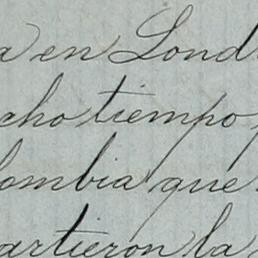 a en Lond
cho tiempo p
lombia que
artieron la